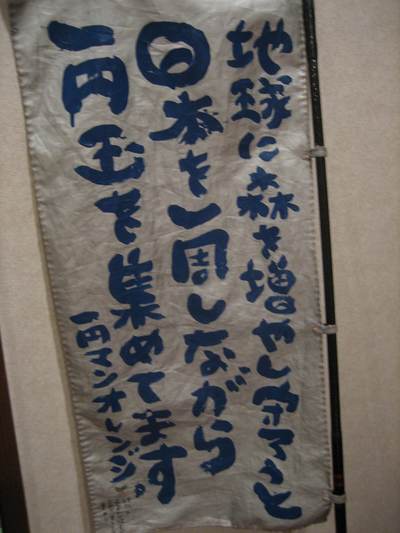 地球に森を増やし守ろうと
日本を一周しながら
一円玉を集めてます。
一円マンオレンジ